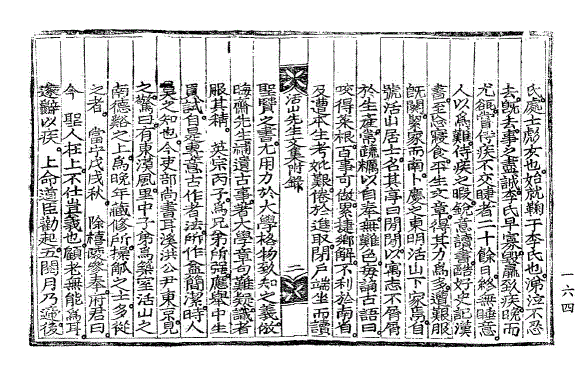 氏處士彪女也始就鞠于李氏也涕泣不忍
去旣去事多盡誠李氏早寡無嗣致疾晩而
尤劇嘗侍疾不交睫者二十餘日終無睡意
人以爲難侍疾之暇銳意讀書酷好史記漢
書至忘寢食平生文章得其力爲多遭艱服
旣闋絜家而南卜慶之東明活山下家焉自
號活山居士名其亭曰閒閒以寓志不屑屑
於生產常蔬糲以自奉無難色每誦古語曰
咬得菜根百事可做累捷鄕解不利於南省
及遭本生考妣艱倦於進取閉戶端坐而讀
活山先生文集附錄
二
聖賢之書尤用力於大學格物致知之義倣
晦齋先生補遺古事著大學章句難疑識者
服其精英宗丙子爲兄弟所強應擧中生
員試自是專意古作者法所作益簡潔時人
莫之知也今吏部尙書耳溪洪公尹東京見
之驚曰有東漢風里中子弟爲築室活山之
南德谿之上爲晩年藏修所操觚之士多從
之者當宁戊戌秋除禧陵參奉府君曰
今聖人在上不仕無義也顧老無能爲耳
遂辭以疾上命道臣勸起五閱月乃遞後
一六四